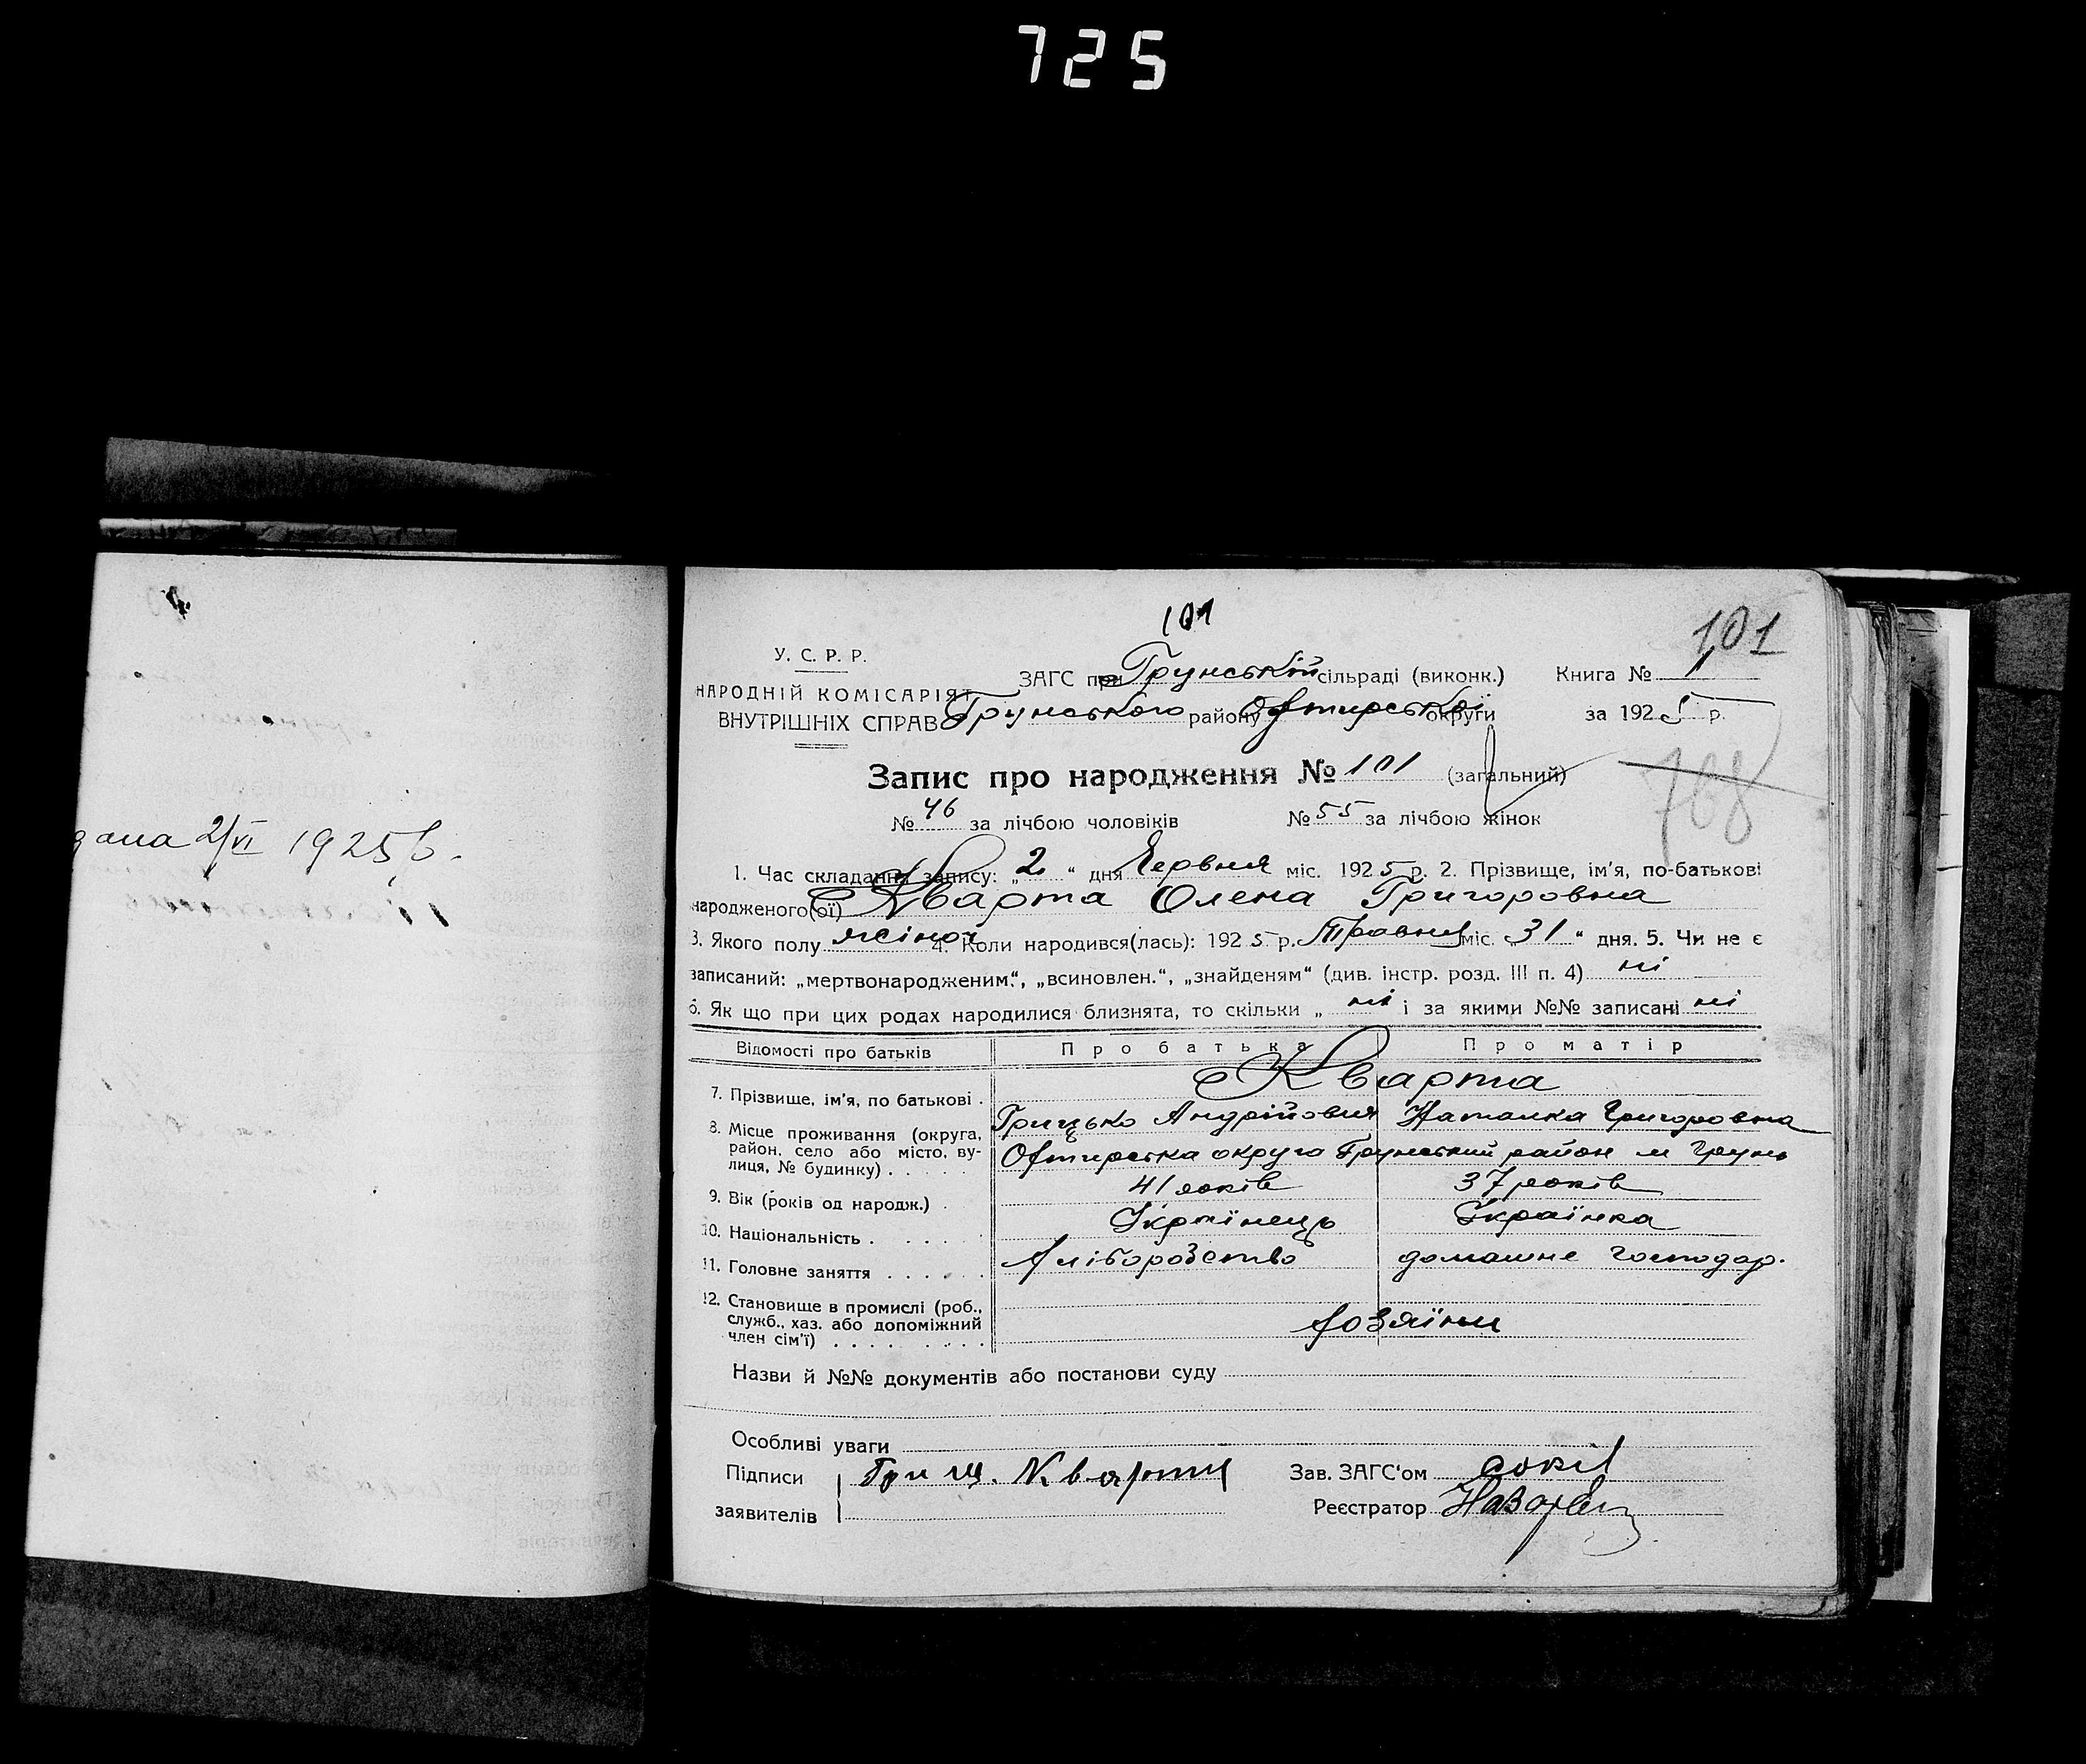 725
дана 2/VI 1925 б.
101
101
У. С. Р. Р.
НАРОДНІЙ КОМІСАРІЯТ
ВНУТРІШНІХ СПРАВ
ЗАГС при Грунській сільраді (виконк.) Книга № 1
Грунського району Охтирської округи за 1925 р.
Запис про народження № 101 (загальний)
768
№ 46 за лічбою чоловіків № 55 за лічбою жінок
1. Час складання запису: „2“ дня Червня міс. 1925 р. 2. Прізвище, ім'я, по-батькові
народженого(ої) Кварта Олена Григоровна
3. Якого полу жіноч 4. Коли народився(лась): 1925 р. Травня міс. „31“ дня. 5. Чи не є
записаний: „мертвонародженим“, „всиновлен.“, „знайденям“ (див. інстр. розд. III п. 4) ні
6. Як що при цих родах народилися близнята, то скільки „ ні і за якими №№ записані ні
Відомості про батьків Про батька Про матір
7. Прізвище, ім'я, по батькові . Кварта
Грицько Андрійович Наталка Григоровна
8. Місце проживання (округа, район, село або місто, ву-
лиця, № будинку) . . . . . Охтирська округа Грунський район м Грунь
9. Вік (років од народж.) . 41 років 37 років
10. Національність . . . . . . Українець Українка
11. Головне заняття . . . . . . Хліборобство домашне господар.
12. Становище в промислі (роб.,
служб., хаз. або допоміжний
член сім'ї) . . . . . . . . . хозяїни
Назви й №№ документів або постанови суду
Особливі уваги
Підписи Гриц. Кварта Зав. ЗАГС'ом
заявителів Реєстратор